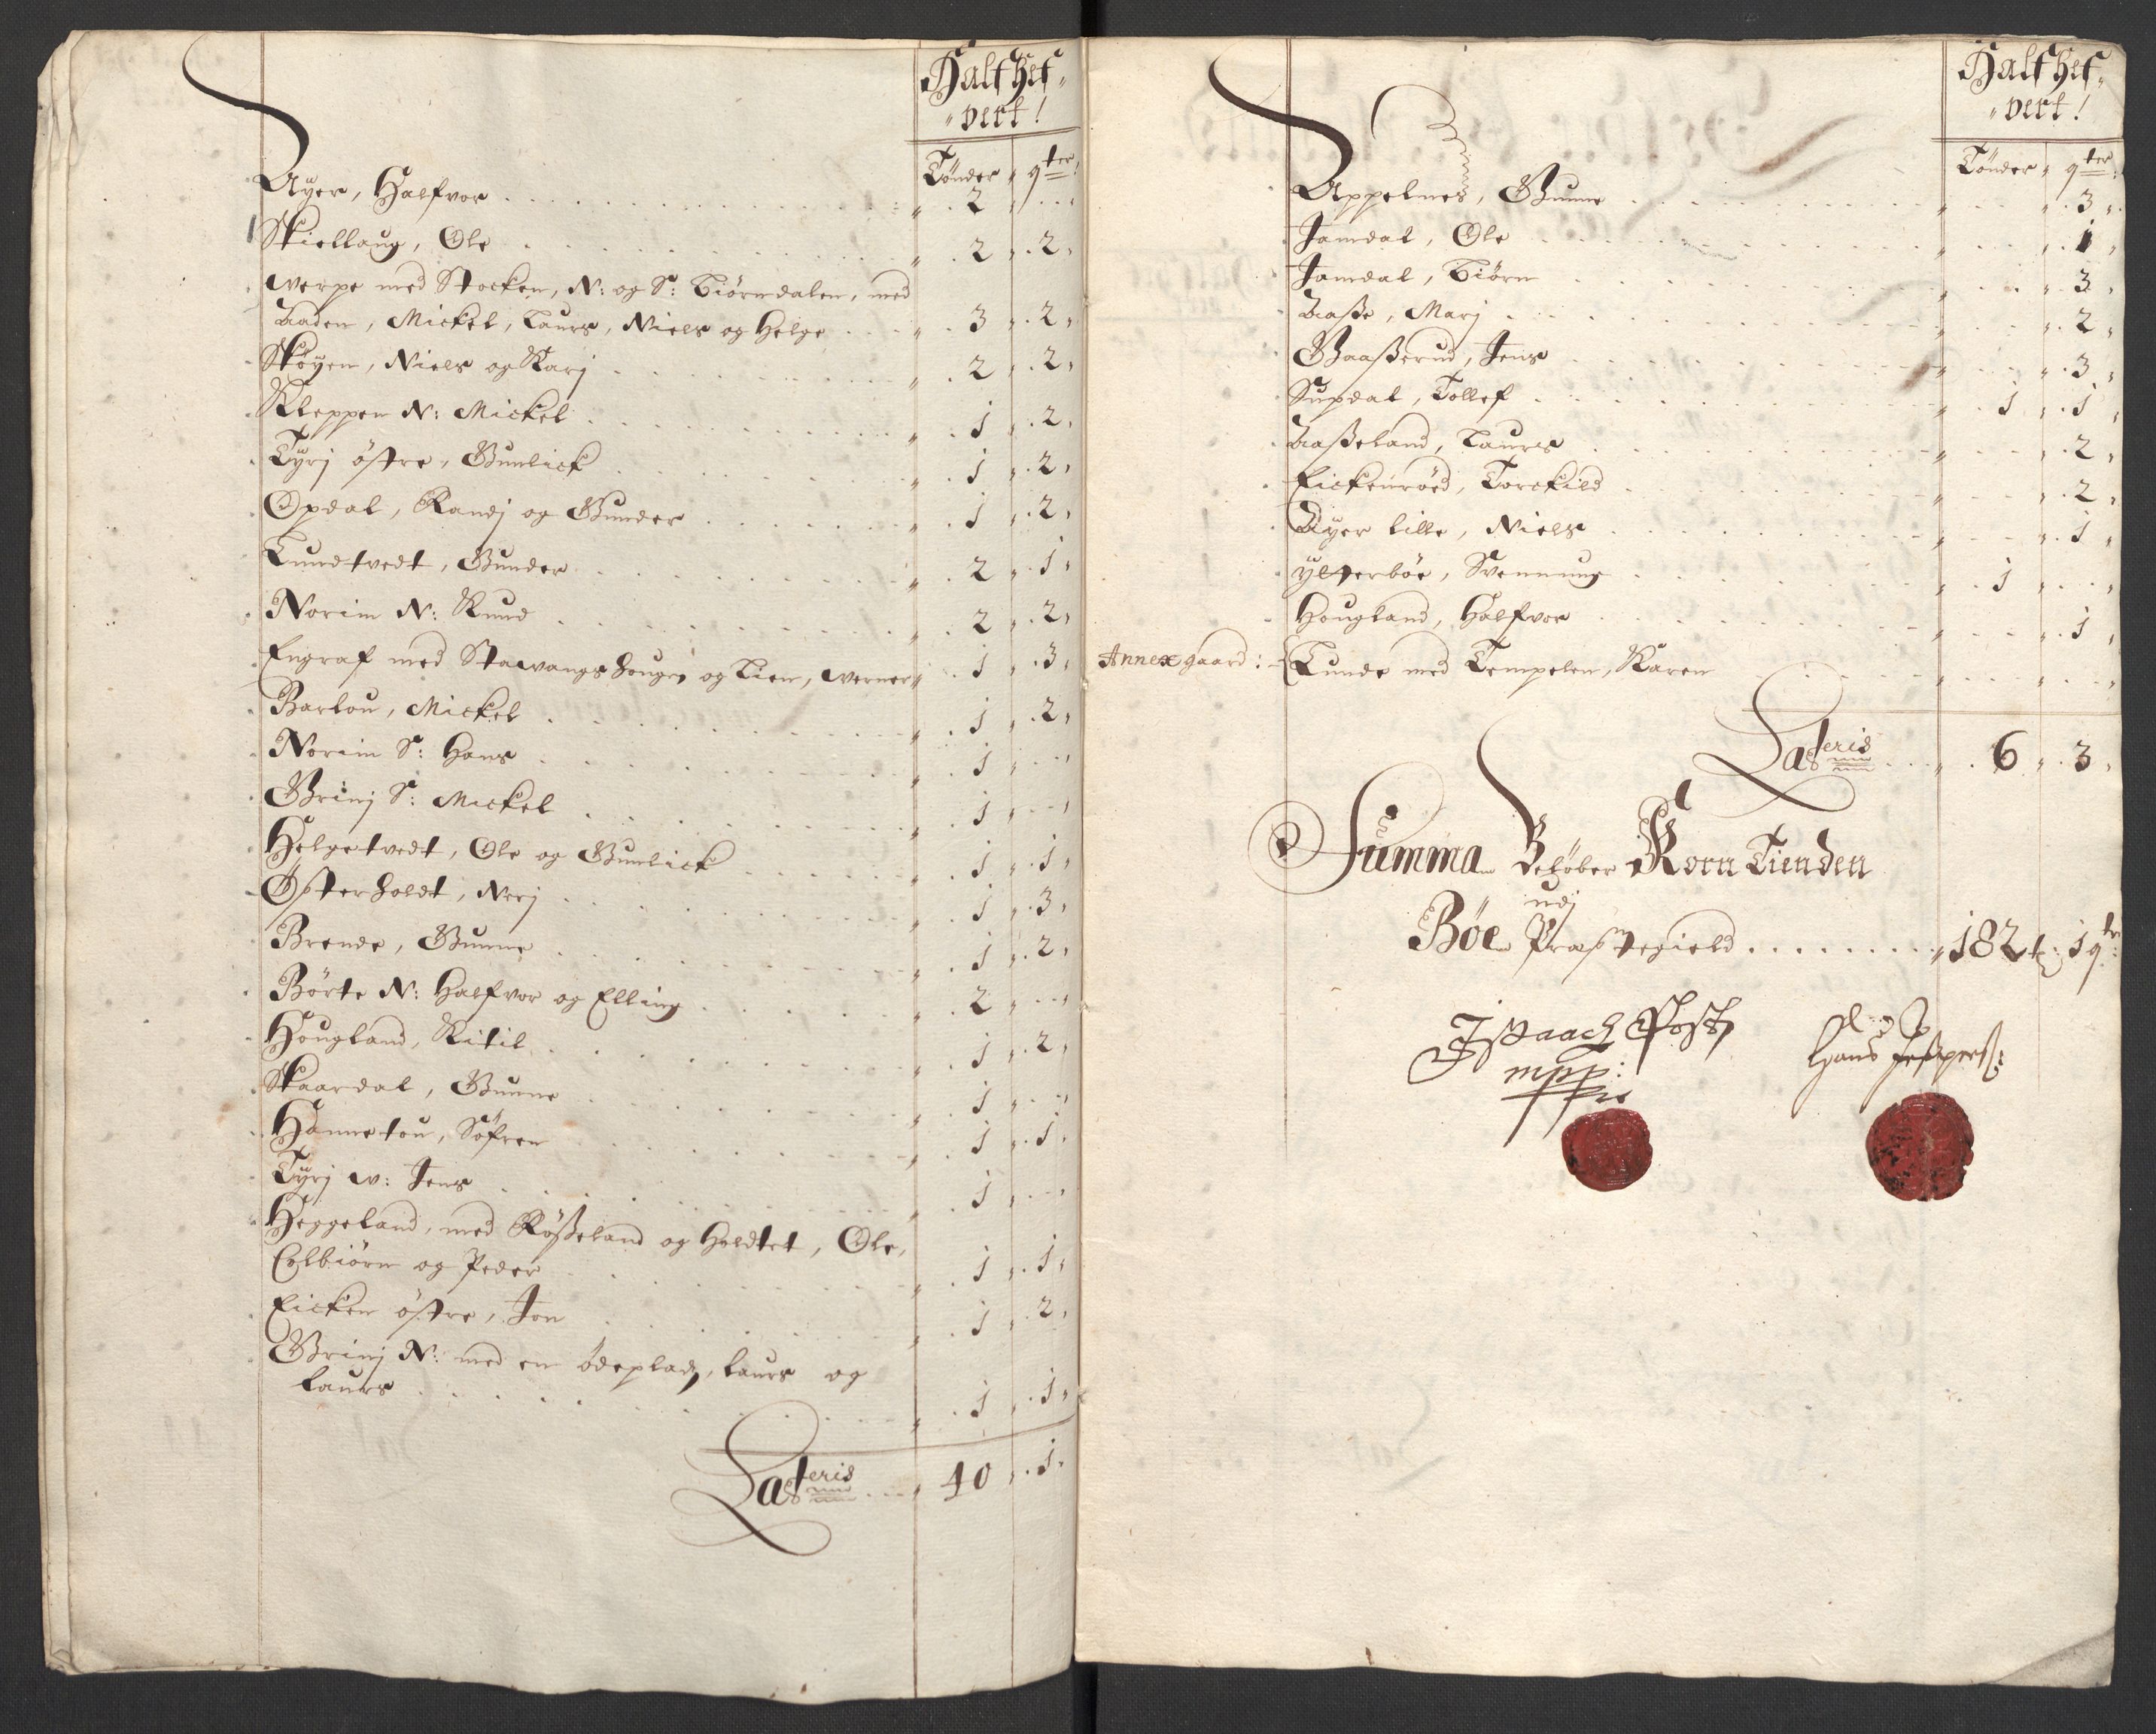 Half hef-
"vert!
Tønder " qter
Uyer, Halfvor . . . 2 " . .
Skiellaug, Ole . . . 2 . 2
Werpe med Stocken, N: og S: Biørndalen, med
Haaden, Mickel, Laurs, Niels og Helge . . . 3 . 2
Skøyen, Niels og Karj . . . 2 . 2
Kleppen N: Mickel . . . 1 . 2
Tyrj østre, Gunlick . . . 1 . 2
Opdal, Randj og Gunder . . . 1 . 2
Lundtvedt, Gunder . . . 2 . 1
Norim N: Knud . . . 2 . 2
Engraf med Stawangs houge, og Lien, Werner 1 . 3
Barlou, Mickel . . . 1 . 2
Norim S: Hans . . . 1 . . .
Grinj S: Mickel . . . 1 . . .
Helgetvedt, Ole og Gunlick . . . 1 . 1
Østerholdt, Nerj . . . 1 . 3
Brende, Gunne . . . 1 . 2
Børte N: Halfvor og Elling . . . 2 . . .
Hougland, Kitil . . . 1 . 2
Skaardal, Gunne . . . 1 . . .
Hannetou, Søfren . . . 1 . 1
Tyrj w: Jens . . . 1 . . .
Heggeland, med Røßeland og Holdtet, Ole,
Colbiørn og Peder . . . 1 . 1
Eicken østre, Jon . . . 1 . 2
Grinj N: med en ødepladz, Laurs og
Laurs . . . 1 . 1
Lateris . . . 40 . 1
Half hef-
"vert!
Tønder " qter
Appelnes, Gunne . . . 3
Jamdal, Ole . . . 1
Jamdal, Biørn . . . 3
Haaße, Marj . . . 2
Gaaßerud, Jens . . . 3
Supdal, Tollef . . . 1 . 1
Haaßeland, Laurs . . . 2
Eickenrøed, Torckild . . . 2
Uyer lille, Niels . . . 1
ylterbøe, Svennung . . . 1 . . .
Hougland, Halfvor . . . 1
Annex gaard: Lunde med Tempelen, Karen . . .
Lateris . . . 6 . 3
Summa Beløber Korn Tienden
udj
Bøe Præstegield . . . 182 t: 1 qtr:
Issaach Post
mpp:
Hans Jespers: